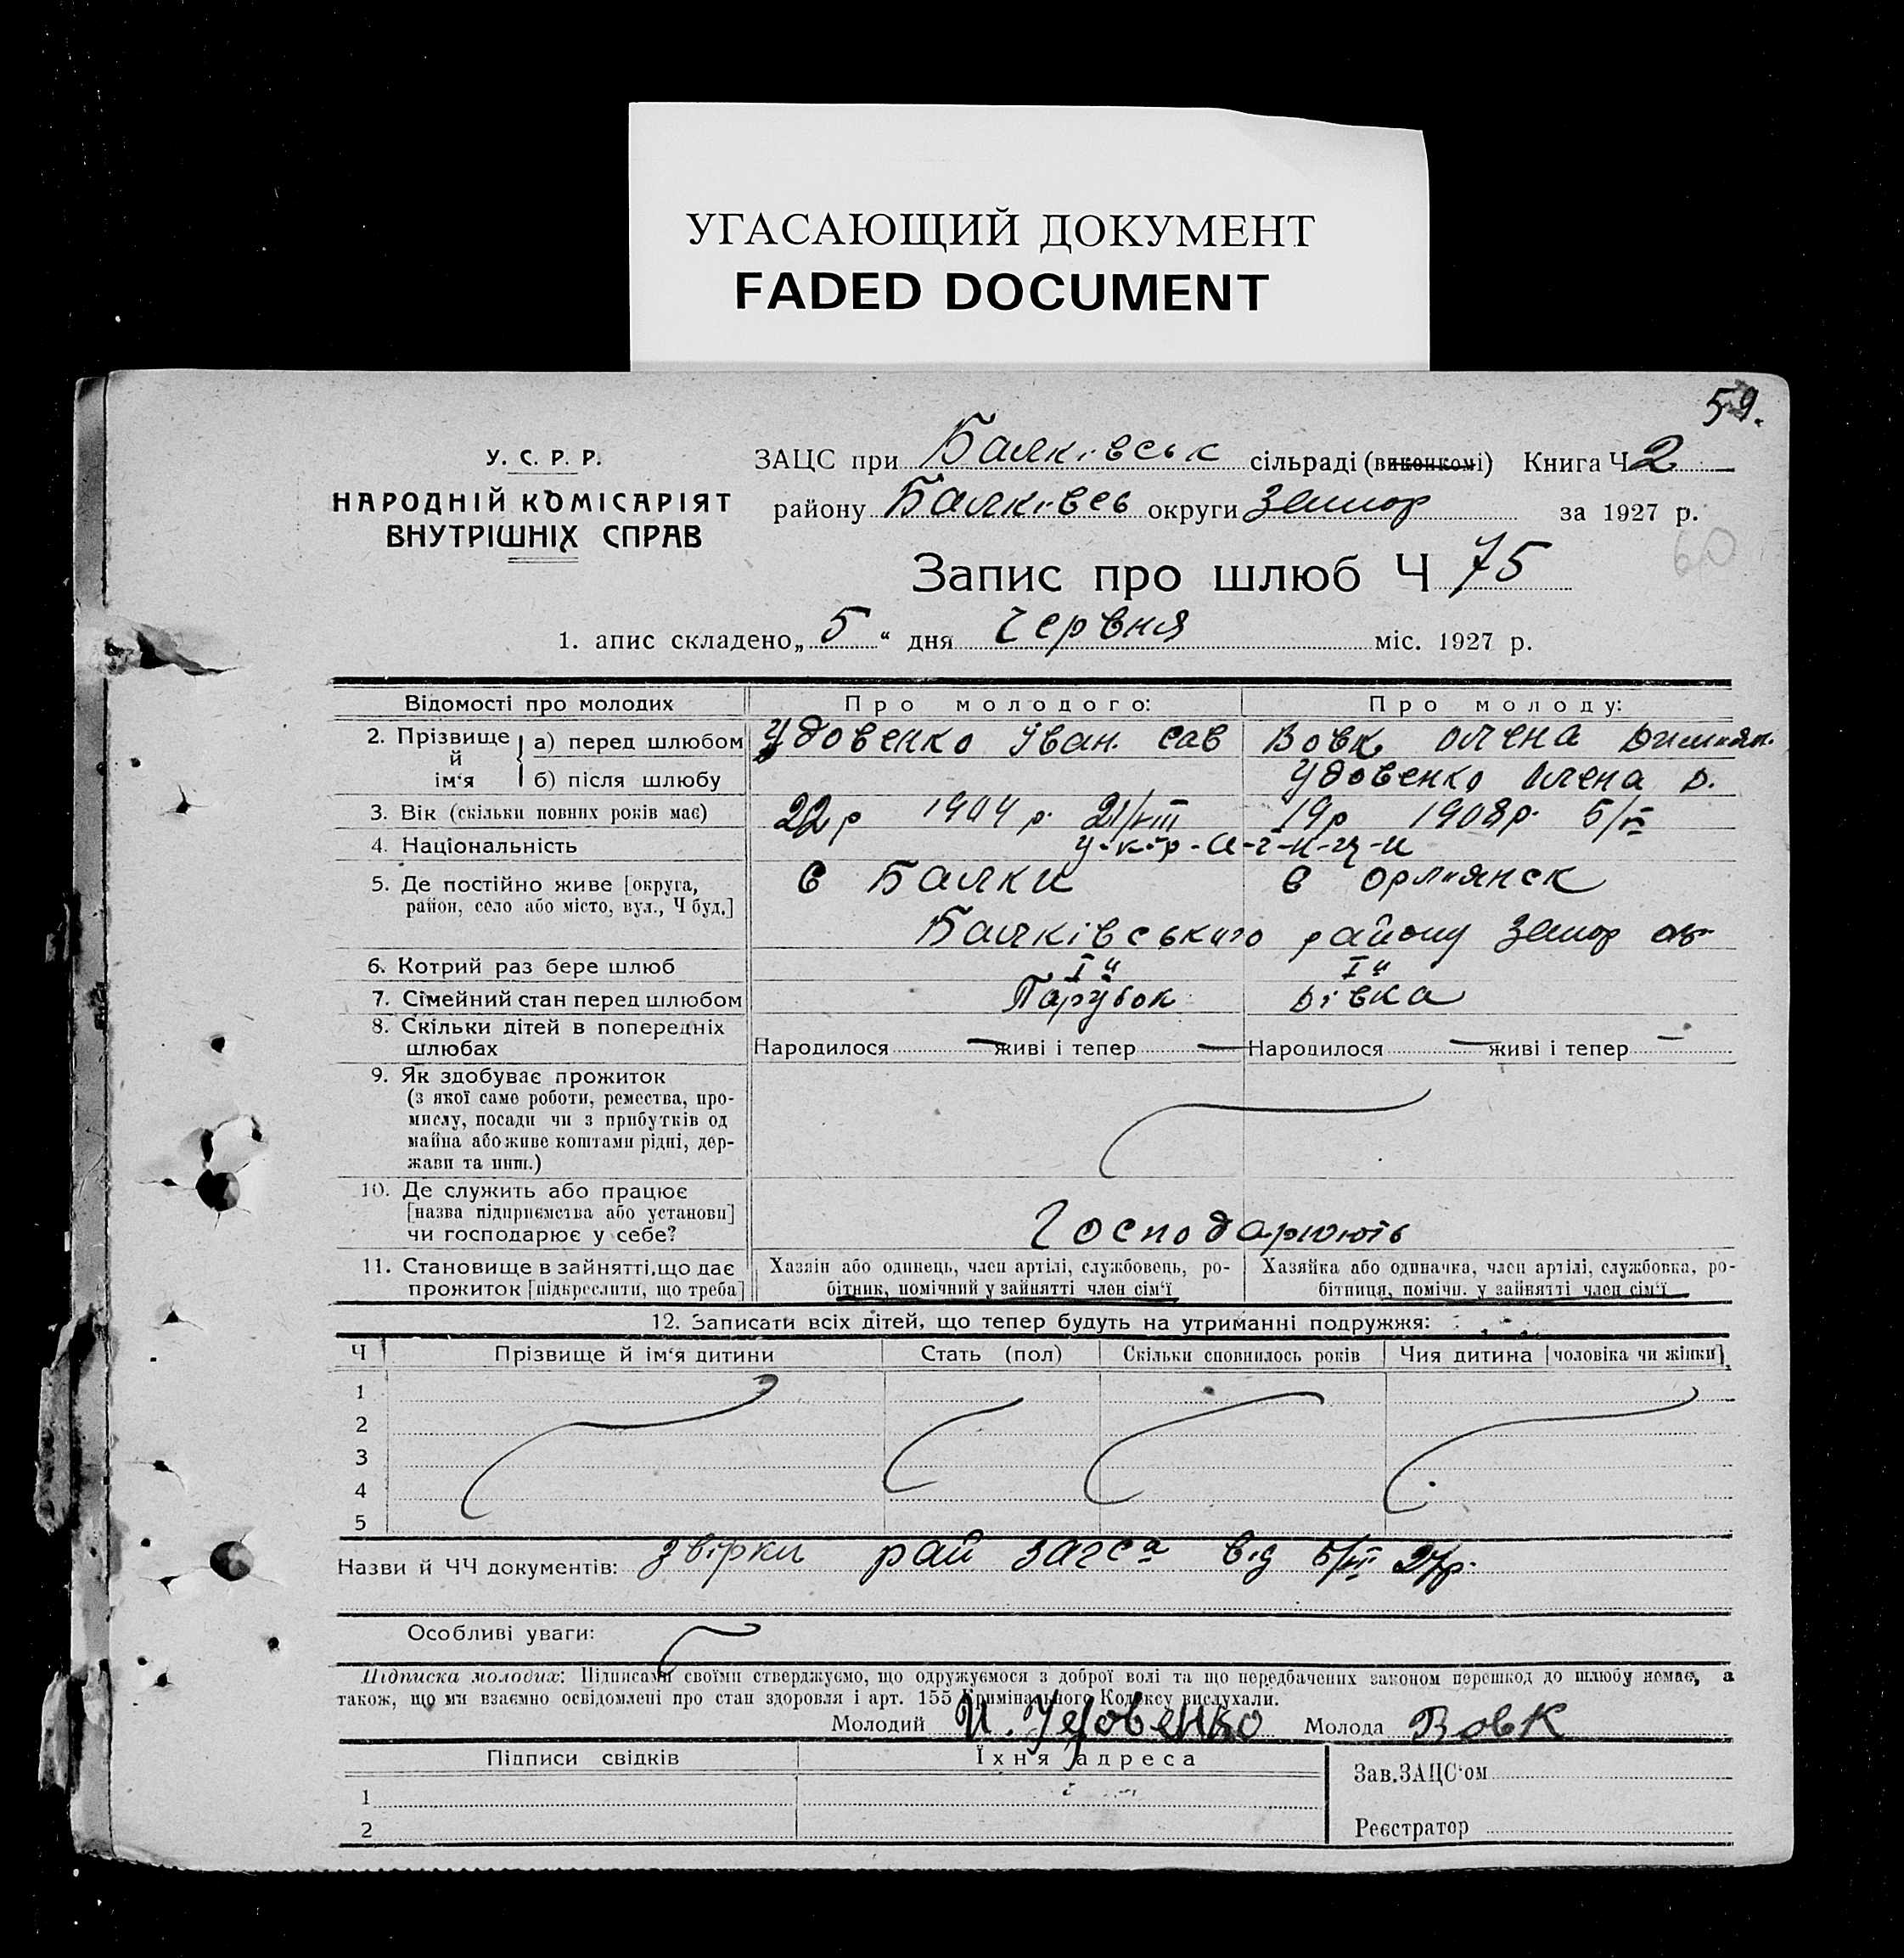 УГАСАЮЩИЙ ДОКУМЕНТ
FADED DOCUMENT
59.
У. С. Р. Р.
НАРОДНІЙ КОМІСАРІЯТ
ВНУТРІШНІХ СПРАВ
ЗАЦС при Балківськ сільраді (виконкомі) Книга Ч 2
району Балківсь округи Запор за 1927 р.
60
Запис про шлюб Ч 75
1. апис складено „ 5 “ дня Червня міс. 1927 р.
Відомості про молодих Про молодого: Про молоду:
2. Прізвище й ім‘я а) перед шлюбом Удовенко Іван. Сав Вовк Олена
б) після шлюбу Удовенко Олена Д.
3. Вік (скільки повних років має) 22 р 1904 р. 21/VIII 19р 1908р. 5/
4. Національність у-к-р-а-ї-н-ц-и
5. Де постійно живе [округа, район, село або місто, вул., Ч буд.] с Балки с Орлянск
Балківського району Запор ок
6. Котрий раз бере шлюб І й І й
7. Сімейний стан перед шлюбом Парубок Дівка
8. Скільки дітей в попередніх шлюбах Народилося — живі і тепер — Народилося — живі і тепер —
9. Як здобуває прожиток
(з якої саме роботи, ремества, про-
мислу, посади чи з прибутків од
майна або живе коштами рідні, дер-
жави та инш.)
10. Де служить або працює
[назва підприємства або установи]
чи господарює у себе? Господарюють
11. Становище в зайнятті, що дає прожиток [підкреслити, що треба]
Хазяїн або одинець, член артілі, службовець, ро-
бітник, помічний у зайнятті член сім‘ї
Хазяйка або одиначка, член артілі, службовка, ро-
бітниця, помічн. у зайнятті член сім‘ї
12. Записати всіх дітей, що тепер будуть на утриманні подружжя:
Ч Прізвище й ім‘я дитини Стать (пол) Скільки сповнилось років Чия дитина [чоловіка чи жінки]
1
2
3
4
5
Назви й ЧЧ документів: звірки рай загса від 27р.
Особливі уваги:
Підписка молодих: Підписами своїми стверджуємо, що одружуємося з доброї волі та що передбачених законом перешкод до шлюбу немає, а
також, що ми взаємно освідомлені про стан здоровля і арт. 155 Кримінального Кодексу вислухали.
Молодий И. Удовенко Молода Вовк
Підписи свідків Їхня адреса
1
2
Зав.ЗАЦС‘ом
Реєстратор